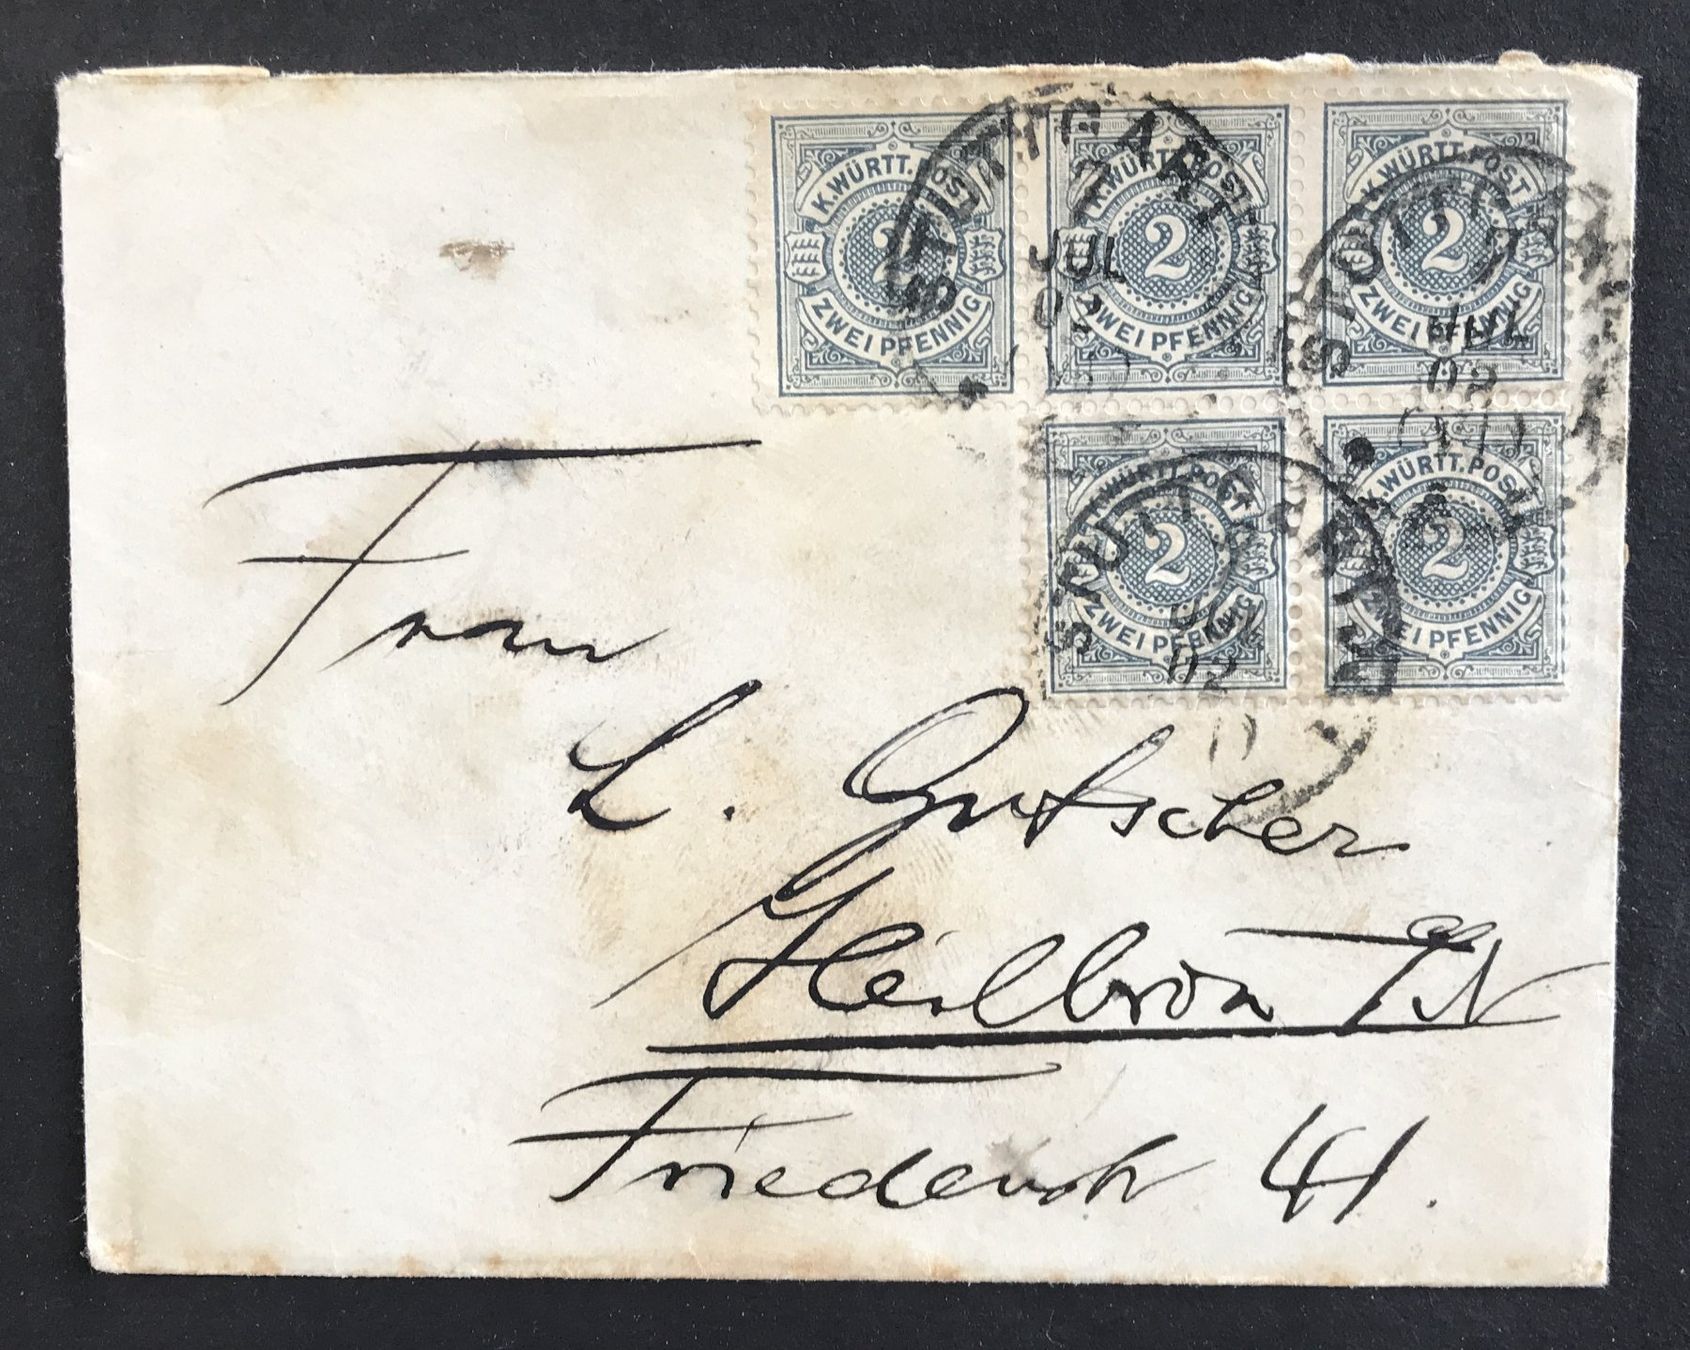 K. WÜRTT. POST
2
ZWEI PFENNIG
K. WÜRTT. POST
2
ZWEI PFENNIG
K. WÜRTT. POST
2
ZWEI PFENNIG
STUTTGART
7
JUL
02
STUTTGART
7
JUL
02
K. WÜRTT. POST
2
ZWEI PFENNIG
K. WÜRTT. POST
2
ZWEI PFENNIG
STUTTGART
02
Frau
L. Gutscher
Heilbron a/N
Friedenstr 41.